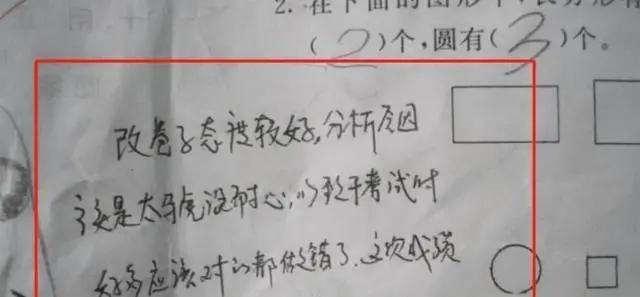 2. 在下面的图形中,长方形有
(2)个,圆有(3)个。
改卷子态度较好,分析原因
该是太马虎没耐心,以致于考试时
好多应该对的都做错了.这次成绩